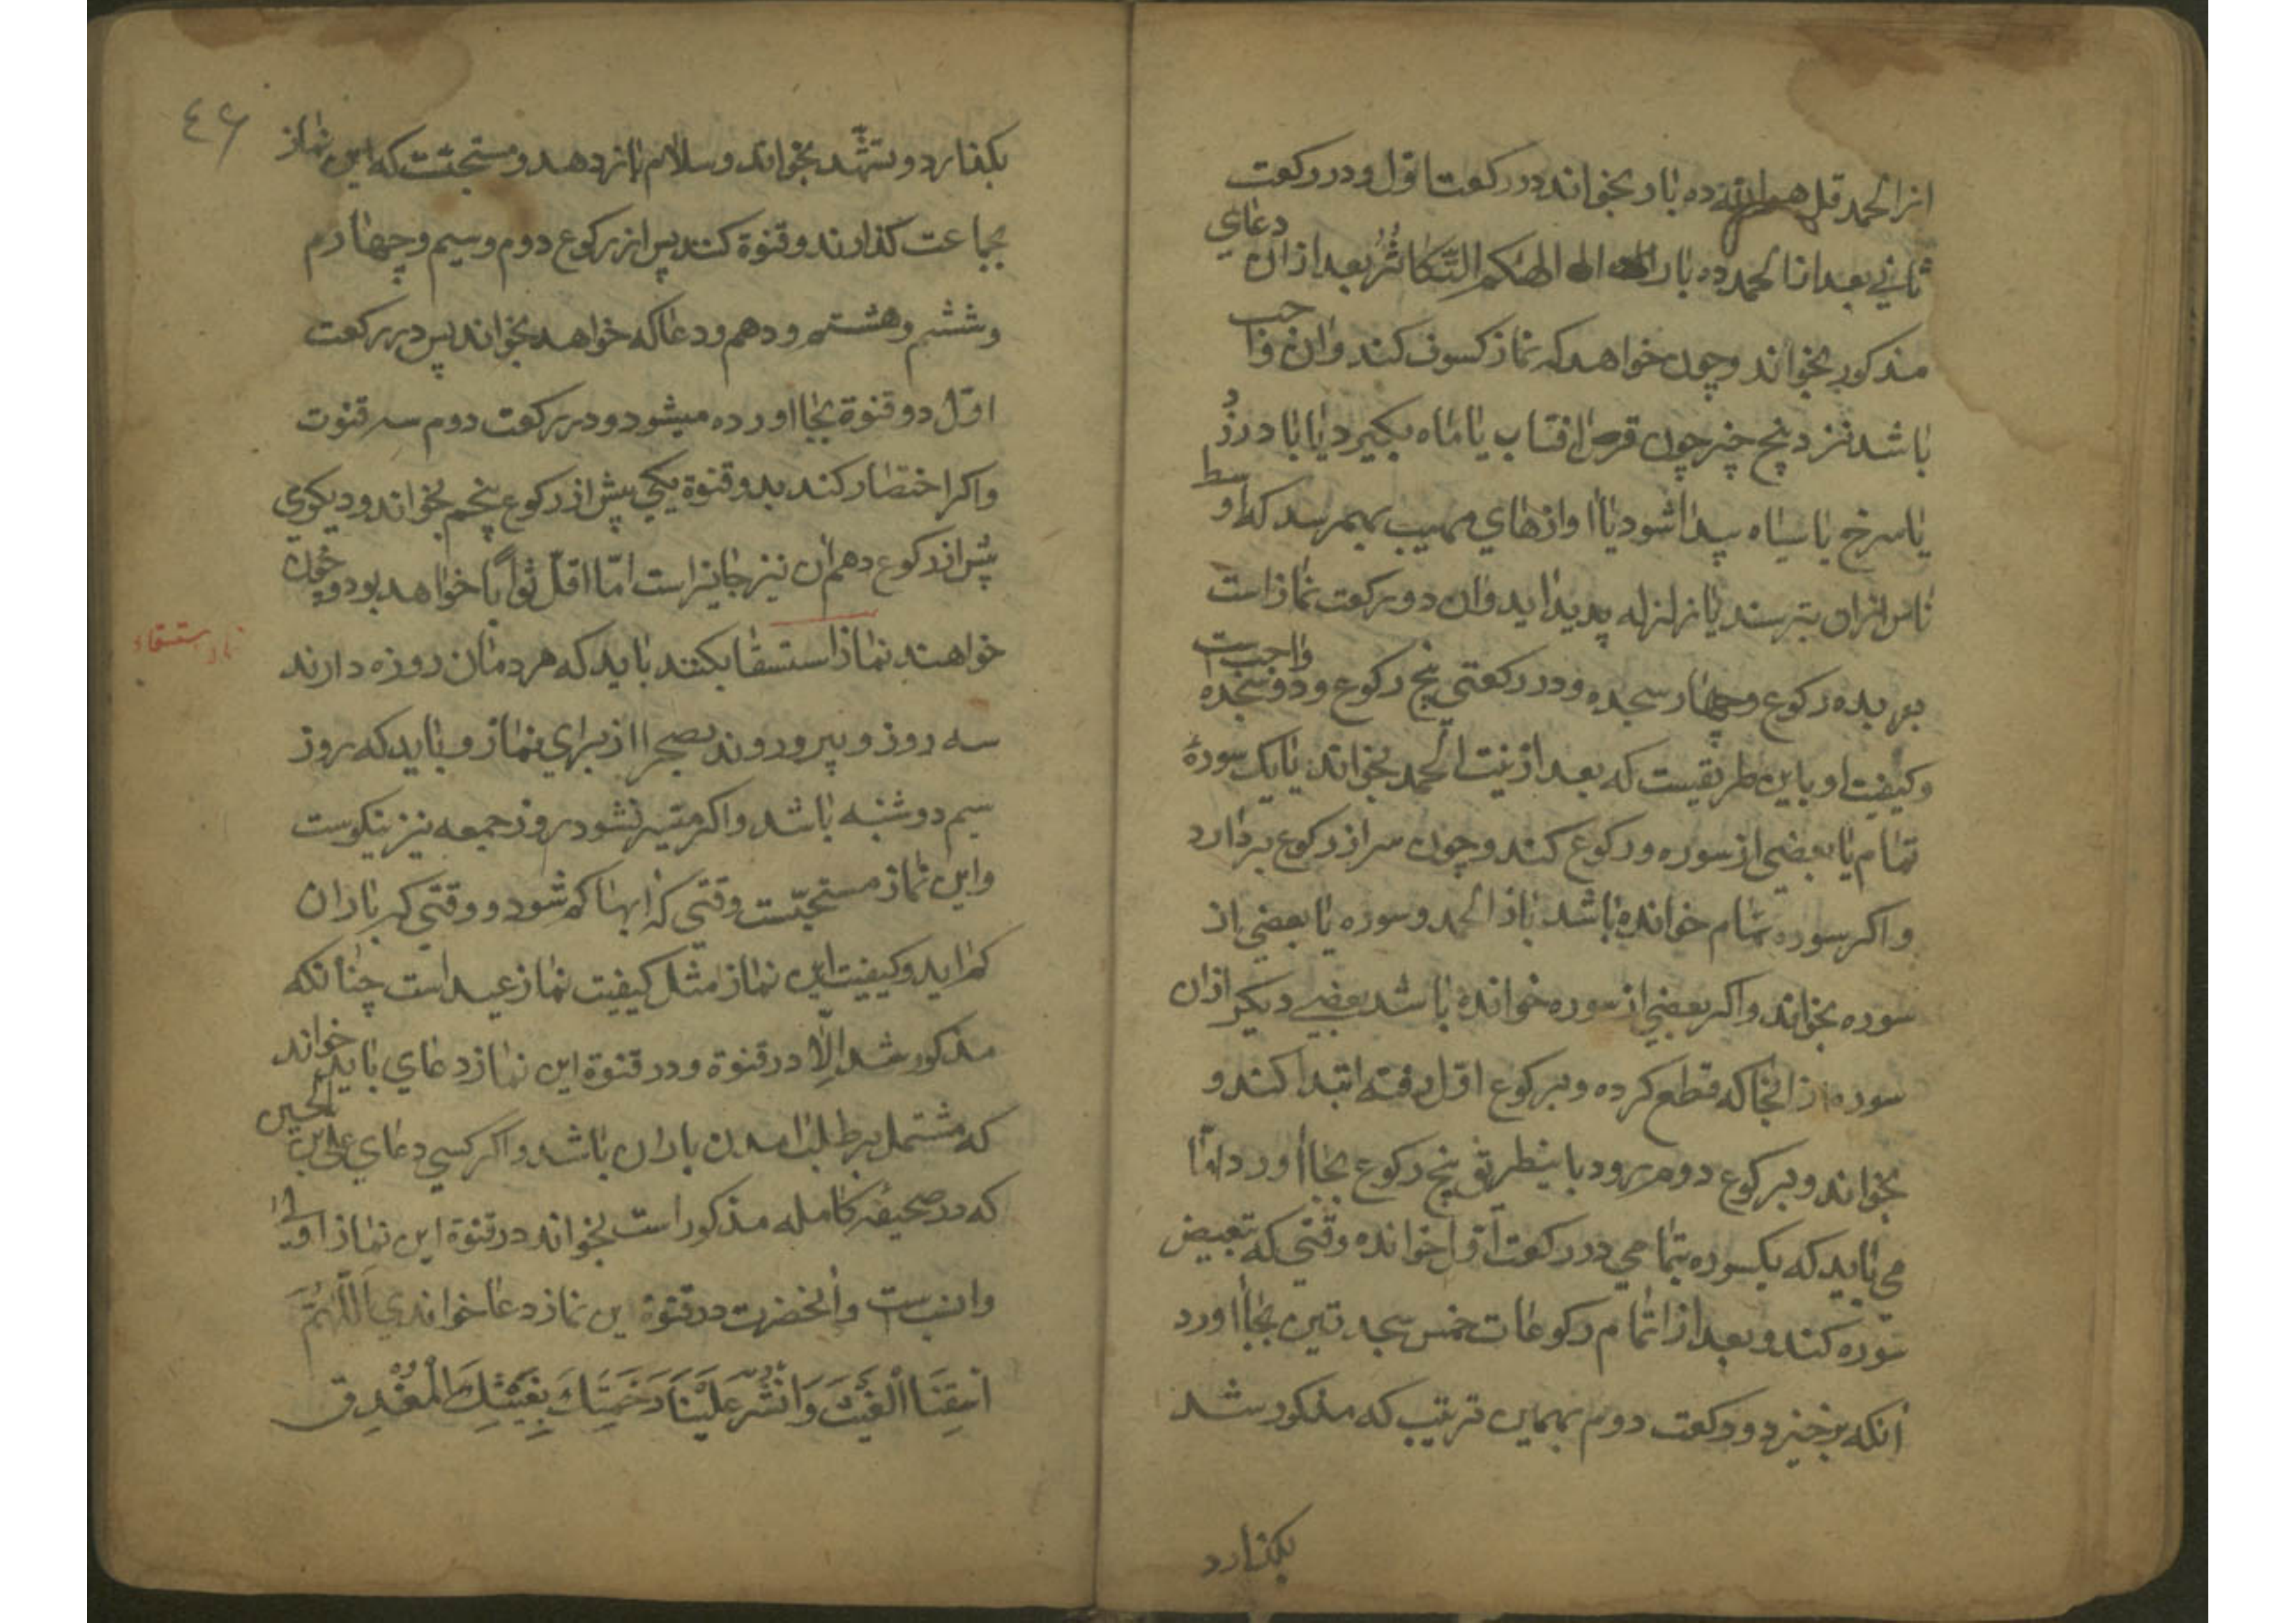 از الحمد قل هو الله ده بار بخواند در رکعت اول و در رکعت
ثانی بعد از الحمد ده بار الهیکم التکاثر بعد از ان دعای
مذکور بخواند و چون خواهد که نماز کسوف کند و ان واجب
باشد نزد پنج چیز چون قرص افتاب یا ماه بکیرد یا باد زرد
یا سرخ یا سیاه پیدا شود یا اوازهای مهیب بهم رسد که اوسط
ناس ازان بترسند یا زلزله پدید اید و ان دو رکعت نماز است
بده رکوع و چهار سجده و در رکعتی پنج رکوع و دو سجده واجبست
و کیفیت او باین طریقیست که بعد از نیت الحمد بخواند با یک سورهٔ
تمام یا بعضی از سوره و رکوع کند و چون سر از رکوع بردارد
و اکر سوره تمام خوانده باشد باز الحمد و سوره یا بعضی از
سوره بخواند و اکر بعضی از سوره خوانده باشد بعضی دیکر از ان
سوره از انجا که قطع کرده و برکوع اول رفته ابتدا کند و
بخواند و برکوع دوم رود باینطریق پنج رکوع بجا اورد اما
می باید که یکسوره بتمامی در رکعت اول خوانده وقتی که تبعیض
سوره کند و بعد از اتمام رکوعات خمس سجدتین بجا اورد
انکه برخیزد و رکعت دوم بهمین ترتیب که مذکور شد
بکذارد
٤٦
بکذارد و تشهد بخواند و سلام باز دهد و مستحبست که این نماز
بجماعت کذارند و قنوة کنند پس از رکوع دوم و سیم و چهارم
و ششم و هشتم و دهم و دعا که خواهد بخواند پس در رکعت
اول دو قنوة بجا اورده میشود و در رکعت دوم سه قنوت
و اکر اختصار کند بدو قنوة یکی پیش از رکوع پنجم بخواند و دیکری
پس از رکوع دهم ان نیز جایز است اما اقل ثوابا خواهد بود و چون
خواهند نماز استسقا بکنند باید که مردمان روزه دارند
سه روز و پیرون روند بصحرا از برای نماز و باید که روز
سیم دوشنبه باشد و اکر میسر نشود روز جمعه نیز نیکوست
و این نماز مستحبست وقتی که ابها کم شود و وقتی که باران
کم اید و کیفیت این نماز مثل کیفیت نماز عید است چنانکه
مذکور شد الا در قنوة و در قنوة این نماز دعای باید خواند
که مشتمل بر طلب امدن باران باشد و اکر کسی دعای علی بن الحسین
که در صحیفه کامله مذکور است بخواند در قنوة این نماز اولی
و انسب است و انحضرت در قنوة این نماز دعا خواندی اللهم
اسقنا الغیث وانشر علینا رحمتك بغیثك المغدق